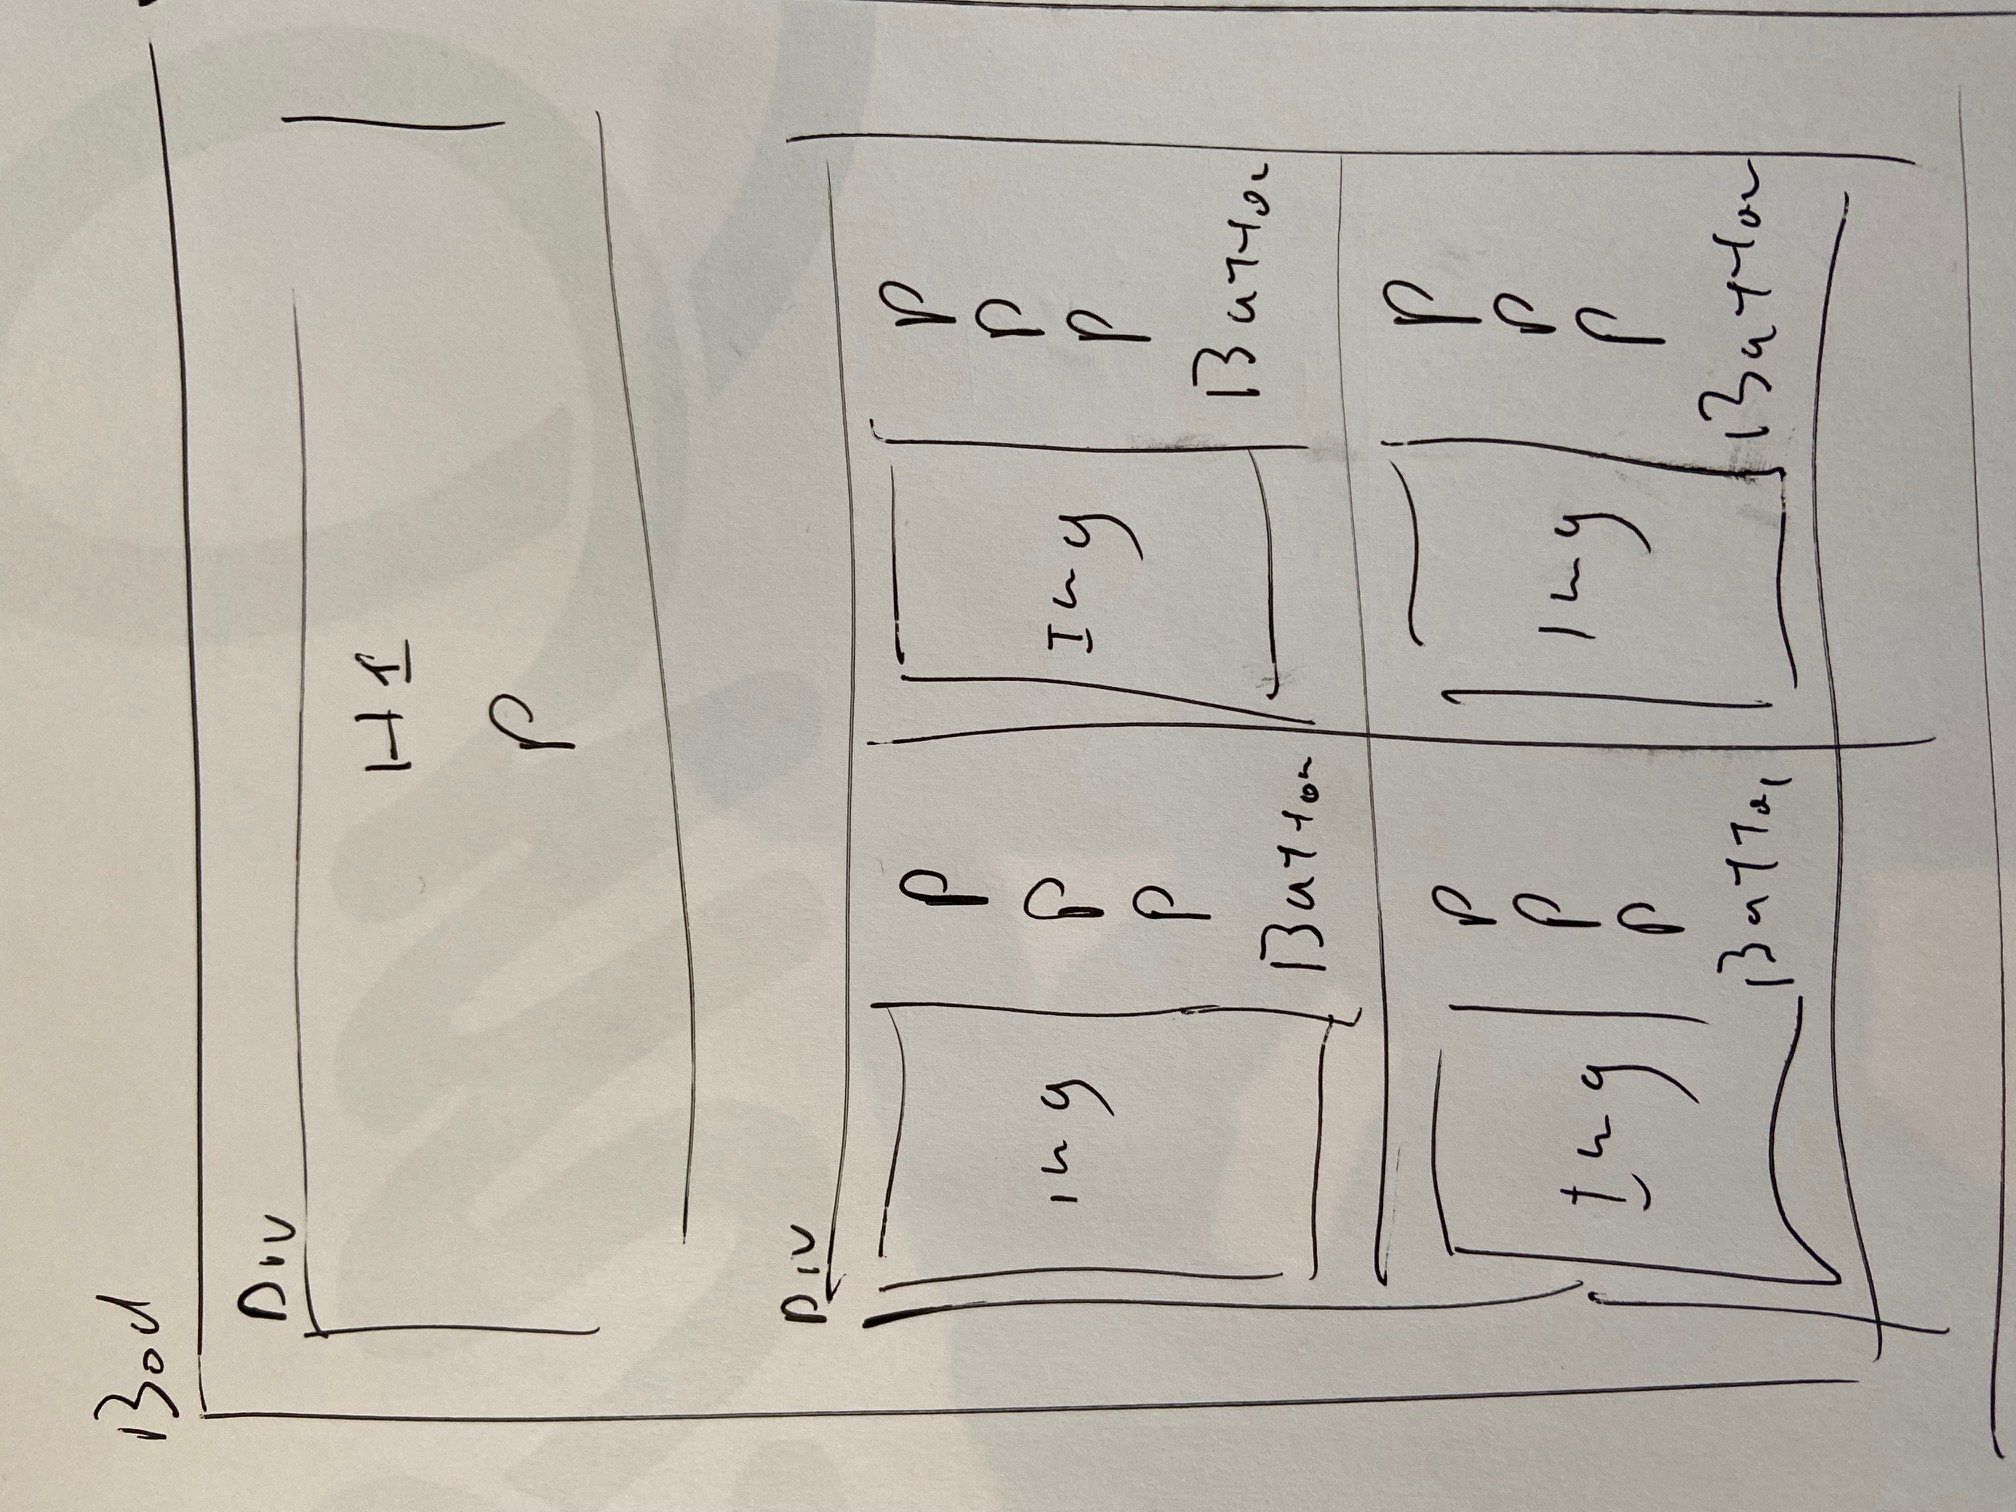 Bod
Div
H1
P
Div
img
P
P
P
Button
Img
P
P
P
Button
Img
P
P
P
Button
Img
P
P
P
Button